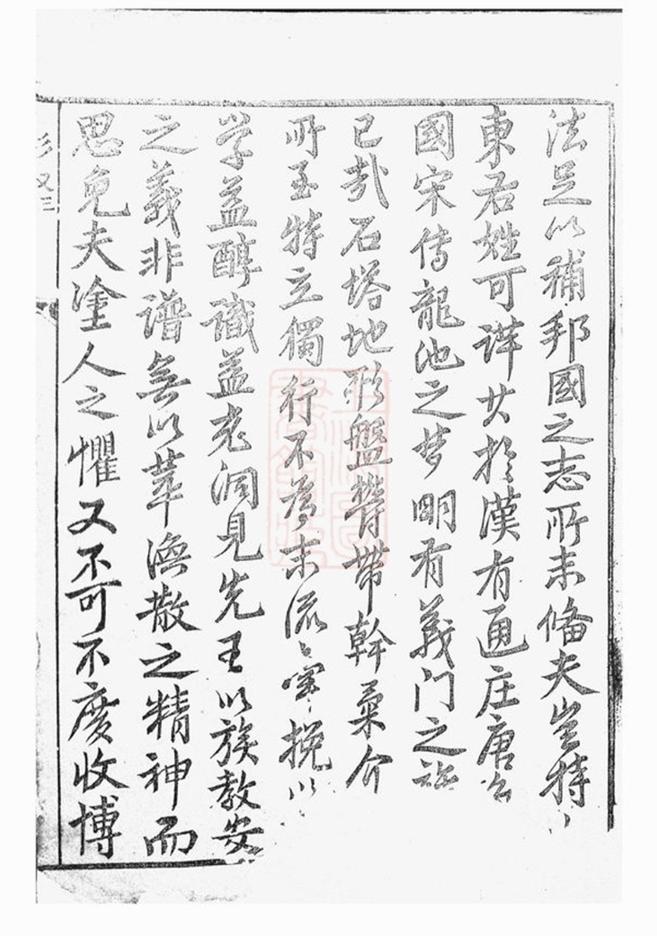 法足以補邦國之志所未俻夫豈特
東君姓可詳廿扵漢有通庄唐
國宋傳龍池之梦明有義门之
已㦲石塔地形盤欝帶幹稟介
所至特立獨行不為末流挽以
学益醇識益老洞見先王以族教安
之義非谱無以萃渙散之精神而
思免夫塗人之懼又不可不廣收博